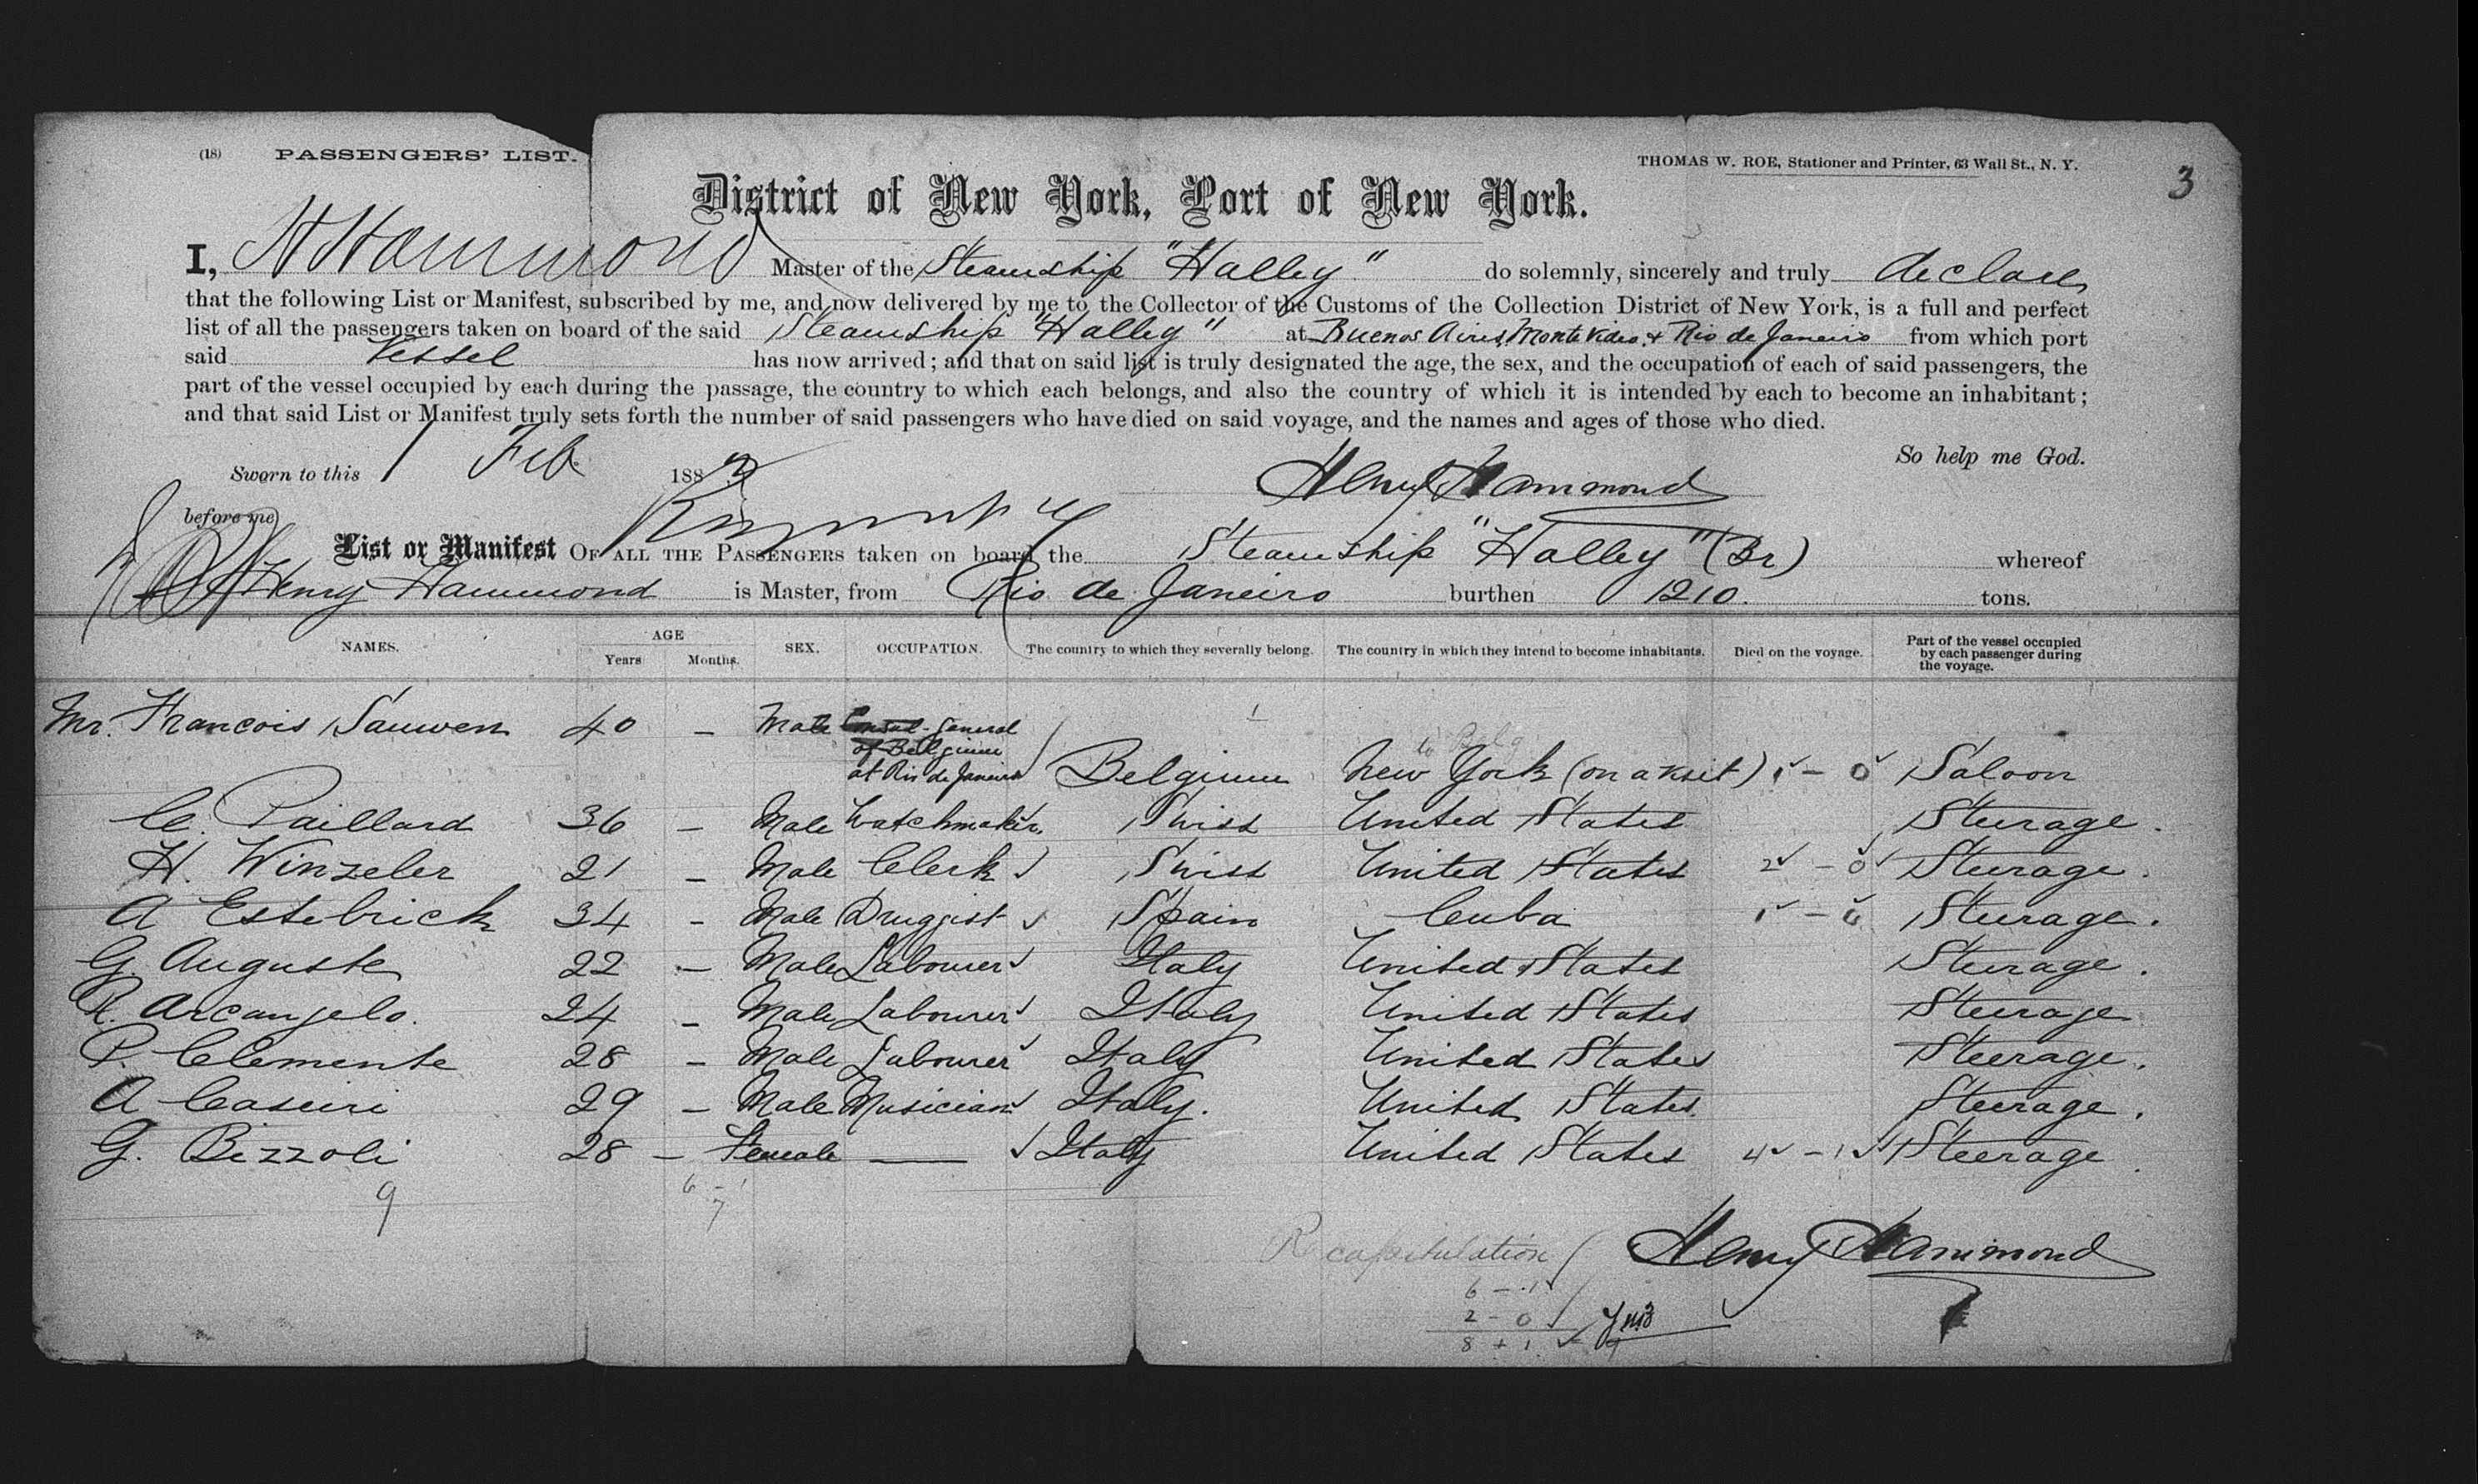 (18) PASSENGERS' LIST.
THOMAS W. ROE, Stationer and Printer, 63 Wall St., N. Y.
3
District of New York, Port of New York.
I, H Hammond Master of the Steamship "Halley" do solemnly, sincerely and truly declare
that the following List or Manifest, subscribed by me, and now delivered by me to the Collector of the Customs of the Collection District of New York, is a full and perfect
list of all the passengers taken on board of the said Steamship "Halley" at Buenos Aires, Monte Video & Rio de Janeiro from which port
said Vessel has now arrived; and that on said list is truly designated the age, the sex, and the occupation of each of said passengers, the
part of the vessel occupied by each during the passage, the country to which each belongs, and also the country of which it is intended by each to become an inhabitant;
and that said List or Manifest truly sets forth the number of said passengers who have died on said voyage, and the names and ages of those who died.
So help me God.
Sworn to this 1 Feb 188
Henry Hammond
before me
List or Manifest OF ALL THE PASSENGERS taken on board the Steamship "Halley" (Br) whereof
Henry Hammond is Master, from Rio de Janeiro burthen 1210. tons.
NAMES. AGE Years Months. SEX. OCCUPATION. The country to which they severally belong. The country in which they intend to become inhabitants. Died on the voyage. Part of the vessel occupied by each passenger during the voyage.
Mr. Francois Sauwen 40 - Male Consul-General of Belgium at Rio de Janeiro Belgium New York (on a visit) 1 - 0 Saloon
C. Paillard 36 - Male Watchmaker Swiss United States Steerage.
H. Winzeler 21 - Male Clerk Swiss United States 2 - 0 Steerage.
A Estebrick 34 - Male Druggist Spain Cuba 1 - 0 Steerage.
G. Auguste 22 - Male Labourer Italy United States Steerage.
R. Arcangelo. 24 - Male Labourer Italy United States Steerage
P. Clemente 28 - Male Labourer Italy United States Steerage.
A Caseiri 29 - Male Musician Italy. United States. Steerage.
G. Bizzoli 28 - Female — Italy United States 4 - 1 Steerage.
9
6 - 1
7
Recapitulation
Henry Hammond
6 - 1
2 - 0
8 + 1
9